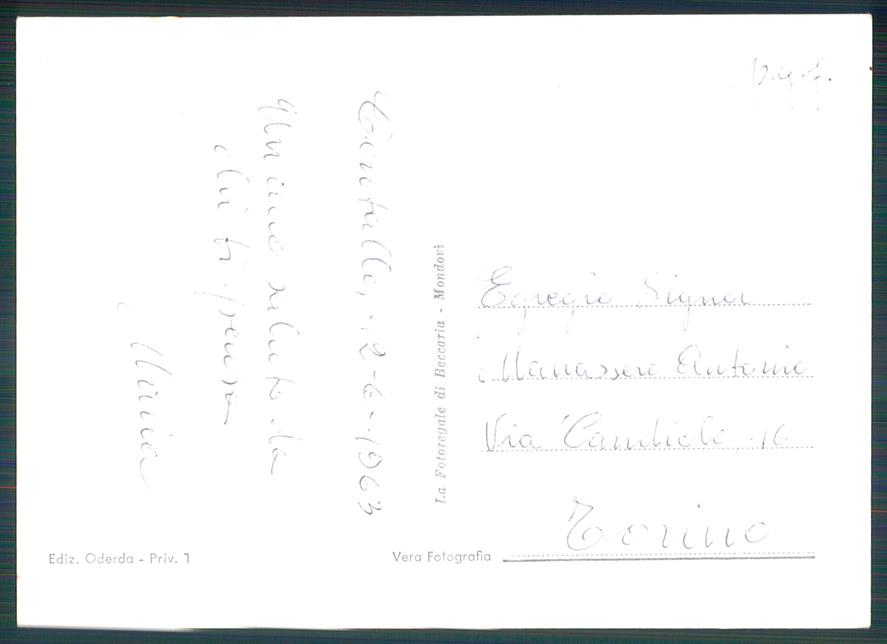 12-6-1963
Un caro saluto da
chi ti pensa
La Fotoregale di Beccaria - Mondovì
Egregio Signor
Manassero Antonio
Via Candiolo 16
Torino
Ediz. Oderda - Priv. 1
Vera Fotografia